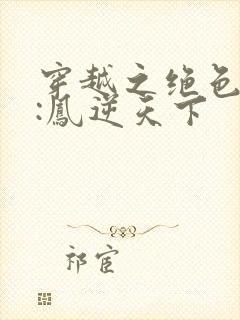 穿越之绝色
:凤逆天下
祁宦